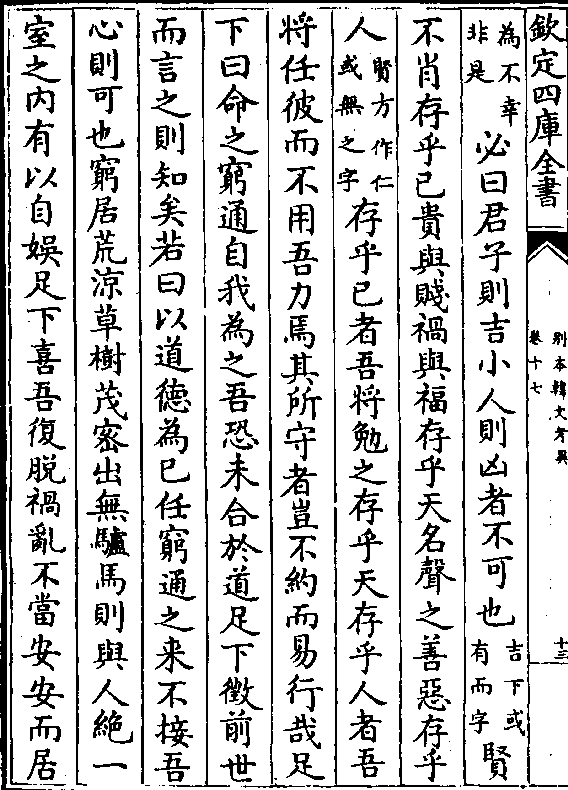 欽定四庫全書
別本韓文考異
卷十七
十三
為不幸
非是
必曰君子則吉小人則凶者不可也
吉下或
有而字
賢
不肖存乎已貴與賤禍與福存乎天名聲之善惡存乎
人
賢方作仁
或無之字
存乎已者吾將勉之存乎天存乎人者吾
將任彼而不用吾力焉其所守者豈不約而易行哉足
下曰命之窮通自我為之吾恐未合於道足下徵前世
而言之則知矣若曰以道德為已任窮通之来不接吾
心則可也窮居荒涼草樹茂密出無驢馬則與人絶一
室之内有以自娛足下喜吾復脫禍亂不當安安而居